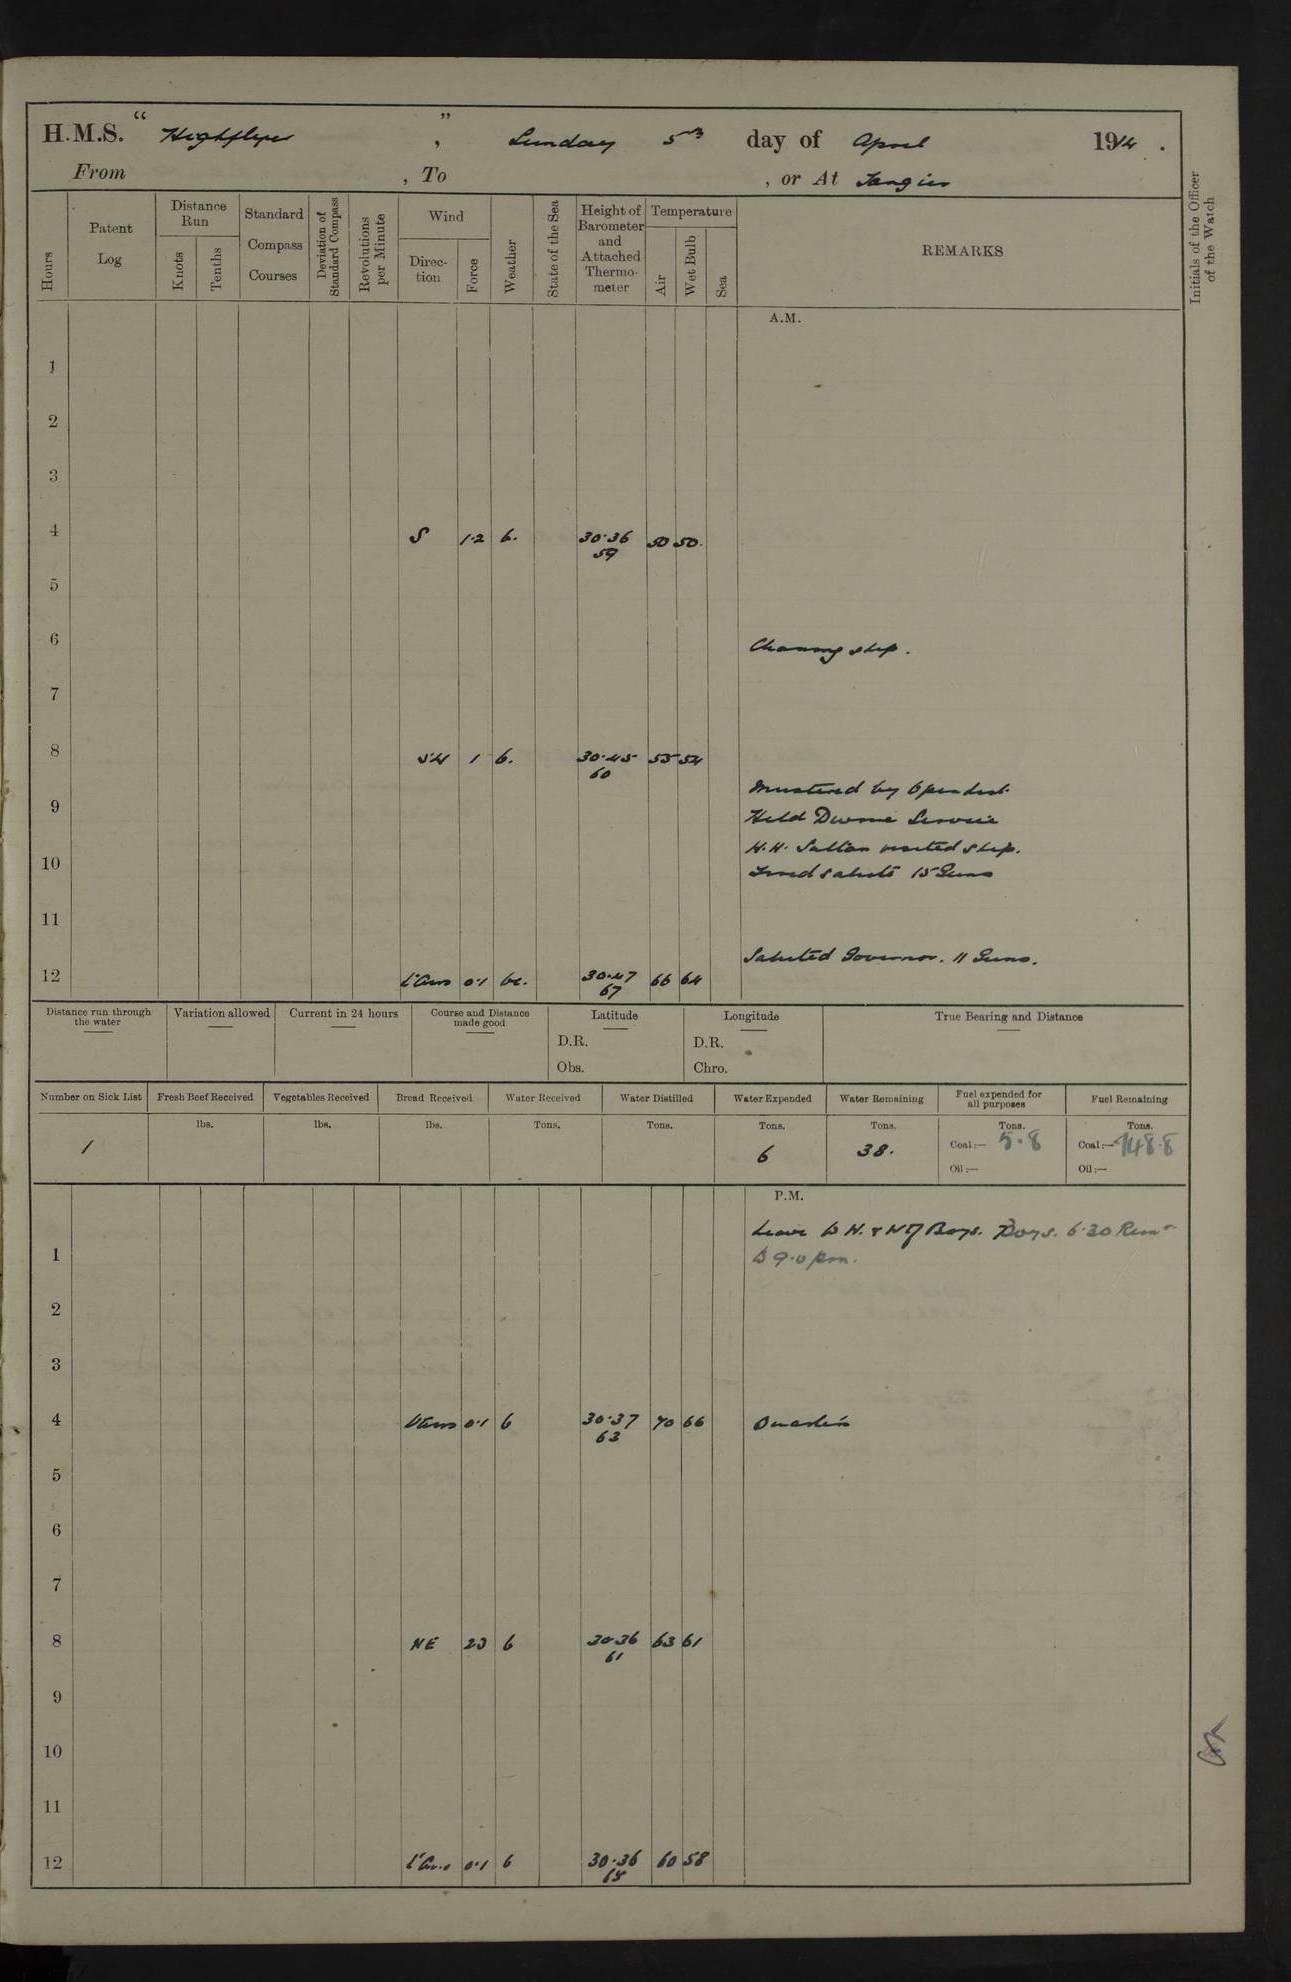 H.M.S. “ Highflyer ” , Sunday 5th day of April 1914 .
From , To , or At Tangier
Hours
Patent Log
Distance Run
Knots
Tenths
Standard Compass Courses
Deviation of Standard Compass
Revolutions per Minute
Wind
Direc- tion
Force
Weather
State of the Sea
Height of Barometer and Attached Thermo- meter
Temperature
Air
Wet Bulb
Sea
REMARKS
Initials of the Officer of the Watch
A.M.
1
2
3
4 S 1.2 b. 30.36 50 50.
59
5
6 Cleaning ship.
7
8 SW 1 b. 30.45 55 54
60
Mustered by Open list.
9 Held Divine Service
H.H. Sultan visited ship.
10 Fired salute 15 Guns
11
Saluted Governor. 11 Guns.
12 L'Airs 0.1 bc. 30.47 66 64
67
Distance run through the water
Variation allowed
Current in 24 hours
Course and Distance made good
Latitude
D.R.
Obs.
Longitude
D.R.
Chro.
True Bearing and Distance
Number on Sick List
Fresh Beef Received
Vegetables Received
Bread Received
Water Received
Water Distilled
Water Expended
Water Remaining
Fuel expended for all purposes
Fuel Remaining
lbs. lbs. lbs. Tons. Tons. Tons. Tons. Tons. Tons.
1 6 38. Coal:— 5.8 Coal:— 748.8
Oil:— Oil:—
P.M.
Leave to Boys. Boys. 6.30
1 to 9.0 pm.
2
3
4 L'Airs 0.1 b 30.37 70 66 Quarters
63
5
6
7
8 NE 23 b 30.36 63 61
61
9
10
11
12 L'Airs 0.1 b 30.36 60 58